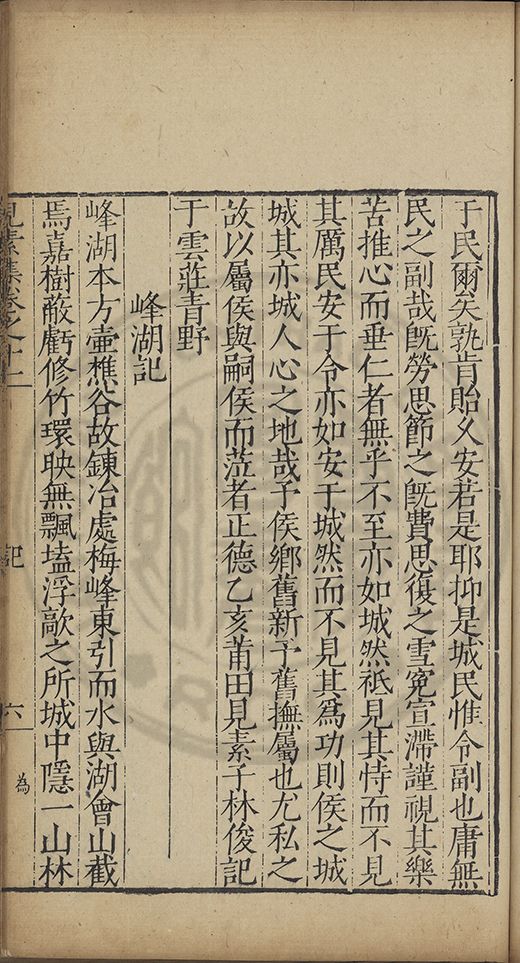 于民爾矣孰肯貽乂安若是耶抑是城民惟令副也庸無
民之副哉旣勞思節之旣費思復之雪寃宣滯謹視其樂
苦推心而垂仁者無乎不至亦如城然祗見其恃而不見
其厲民安于令亦如安于城然而不見其爲功則侯之城
城其亦城人心之地哉予侯鄉舊新予舊撫屬也尤私之
故以屬侯與嗣侯而蒞者正德乙亥莆田見素子林俊記
于雲莊青野
峰湖記
峰湖本方壷樵谷故鍊冶處梅峰東引而水與湖會山截
焉嘉樹蔽虧修竹環映無飄𡏖浮歊之所城中隱一山林
見素集卷之十二
記
六
為